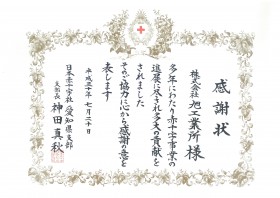 感謝状
株式会社 旭工業所 様
多年にわたり赤十字事業の
進展に尽され多大の貢献を
されました
その御協力に心から感謝の意を
表します
平成三十年 七月 二十日
日本赤十字社 愛知県支部
支部長 神田真秋